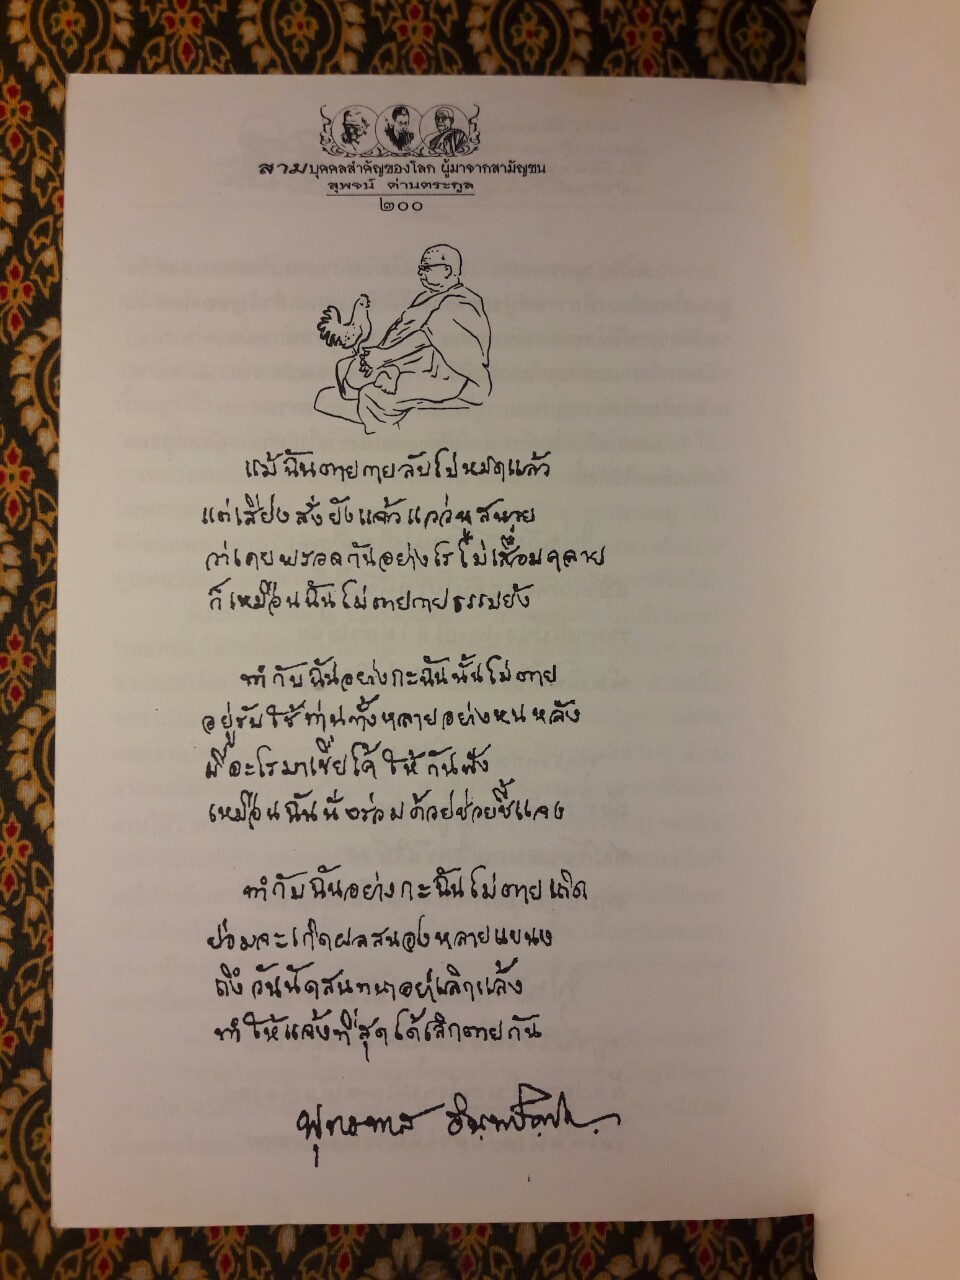 สามบุคคลสำคัญของโลก ผู้มาจากสามัญชน
สุพจน์ ด่านตระกูล
๒๐๐
แม้ฉันตายกายลับไปหมดแล้ว
แต่เสียงสั่งยังแจ้วแว่วหูสหาย
ว่าเคยพรอดกันอย่างไรไม่เสื่อมคลาย
ก็เหมือนฉันไม่ตายกายธรรมยัง
ทำกับฉันอย่างกะฉันนั้นไม่ตาย
อยู่รับใช้ท่านทั้งหลายอย่างหนหลัง
มีอะไรมาเขี่ยไค้ให้กันฟัง
เหมือนฉันนั่งร่วมด้วยช่วยชี้แจง
ทำกับฉันอย่างกะฉันไม่ตายเถิด
ย่อมจะเกิดผลสนองหลายแขนง
ทุกวันนัดสนทนาอย่าเลิกแล้ง
ทำให้แจ้งที่สุดได้เลิกตายกัน
พุทธทาส อินฺทปญฺโญ